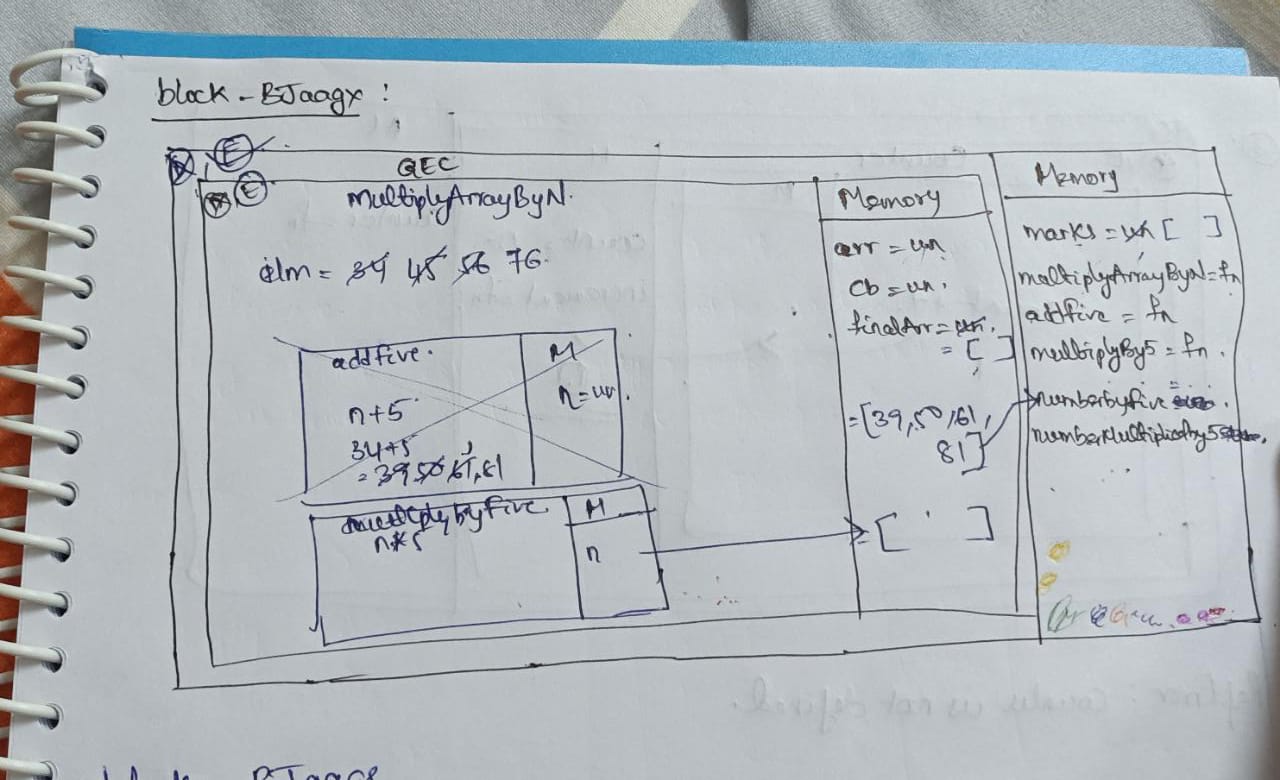 block - BJaagx :
E
GEC
E
multiplyArrayByN.
elm = 34 45 56 76.
addfive.
M
n+5
n=un.
34+5
= 39 50 61, 81
multiplybyfive
M
n*5
n
Memory
arr = un
cb = un.
finalArr = un.
= [ ]
= [39,50,61,
81]
= [ ]
Memory
marks = un [ ]
multiplyArrayByN = fn
addfive = fn
multiplyBy5 = fn.
numberbyfive
numberMultipliedby5
block - BJaags